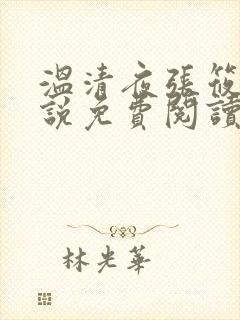 溫清夜張筱
說免費閱讀
林光華